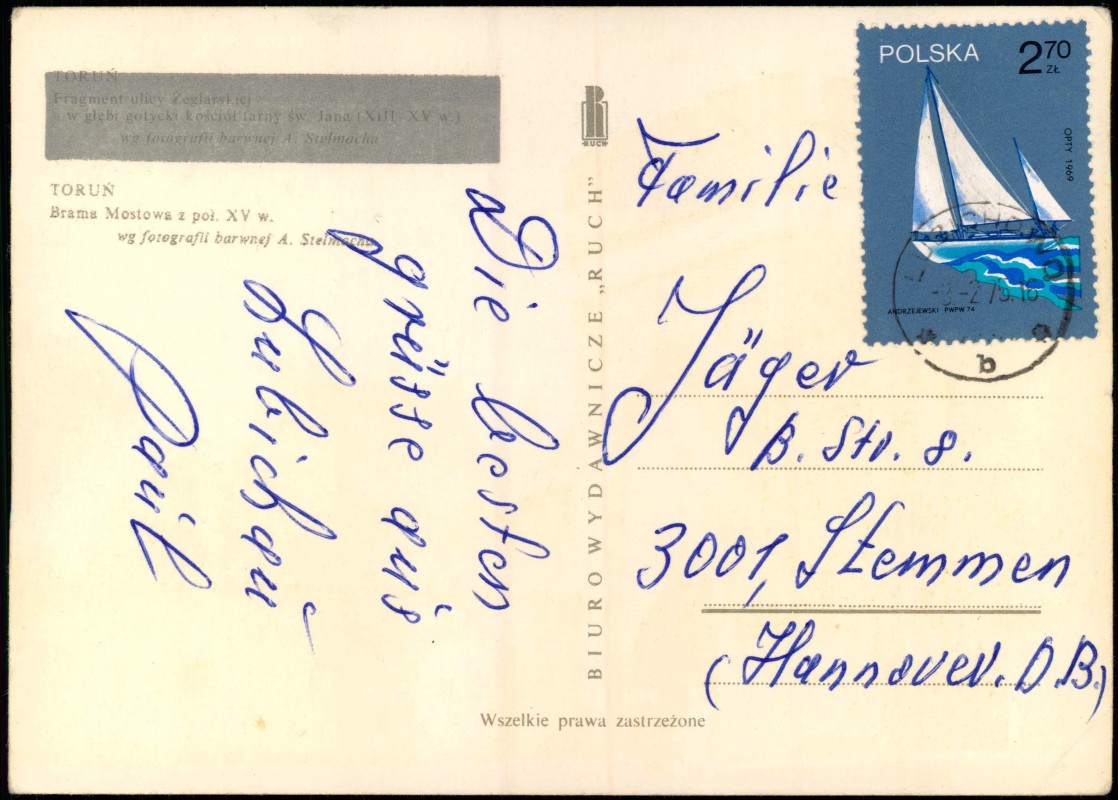 TORUŃ
Fragment ulicy Żeglarskiej
w głębi gotycki kościół farny św. Jana (XIII–XV w.)
wg fotografii barwnej A. Stelmacha
TORUŃ
Brama Mostowa z poł. XV w.
wg fotografii barwnej A. Stelmacha
Die besten
grüsse aus
Lubichau
Paul
RUCH
BIURO WYDAWNICZE „RUCH”
POLSKA
2 70
ZŁ
OPTY 1969
ANDRZEJEWSKI PWPW 74
b
Familie
Jäger
B. Str. 8.
3001, Stemmen
(Hannover. D.B.)
Wszelkie prawa zastrzeżone